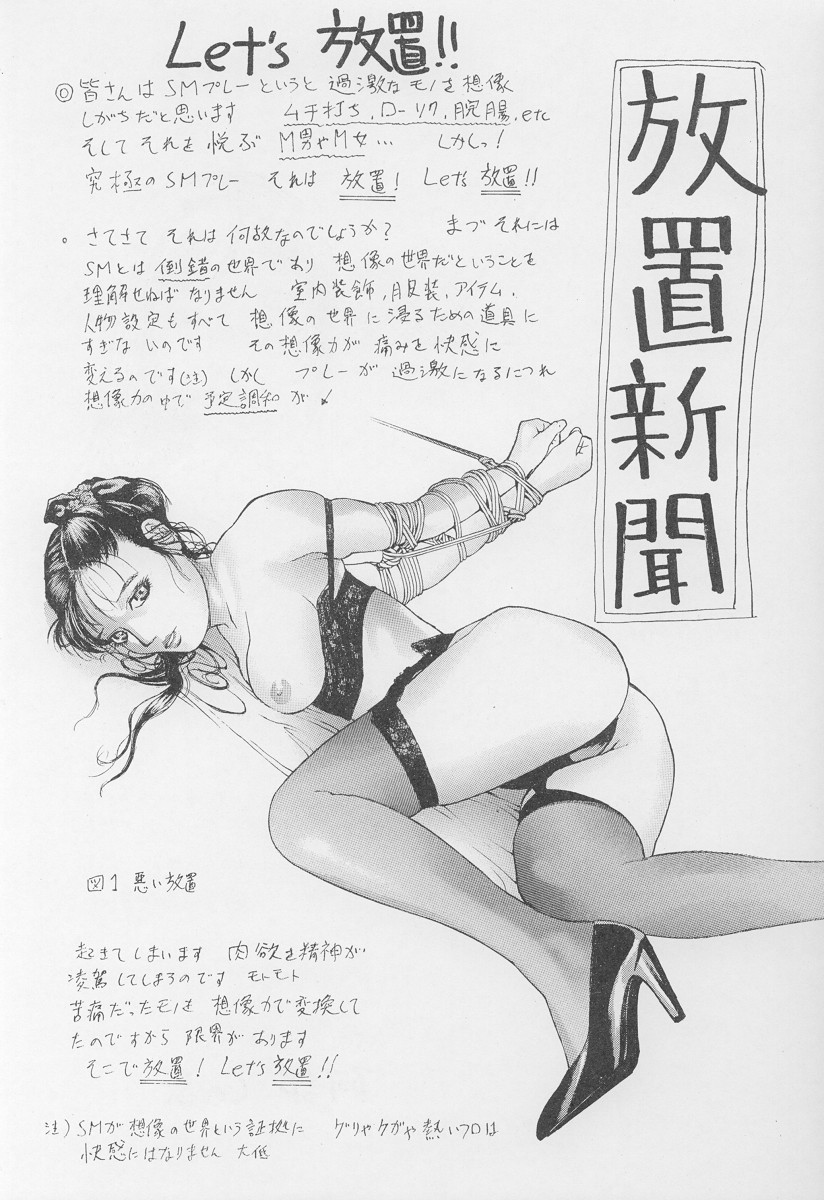 Let's 放置!!
放置新聞
◎皆さんはSMプレーというと過激なモノを想像
しがちだと思います ムチ打ち,ローソク,浣腸,etc
そしてそれを悦ぶM男やM女… しかしっ!
究極のSMプレー それは 放置! Let's 放置!!
。さてさて それは何故なのでしょうか? まづそれには
SMとは倒錯の世界であり 想像の世界だということを
理解せねばなりません 室内装飾,服装,アイテム,
人物設定もすべて 想像の世界に浸るための道具に
すぎないのです その想像力が痛みを快感に
変えるのです(注) しかし プレーが過激になるにつれ
想像力の中で予定調和が
図1 悪い放置
起きてしまいます 肉欲を精神が
凌駕してしまうのです モトモト
苦痛だったモノを 想像力で変換して
たのですから 限界があります
そこで放置! Let's 放置!!
注)SMが想像の世界という証拠に ゲリやケガや熱いフロは
快感にはなりません 大低